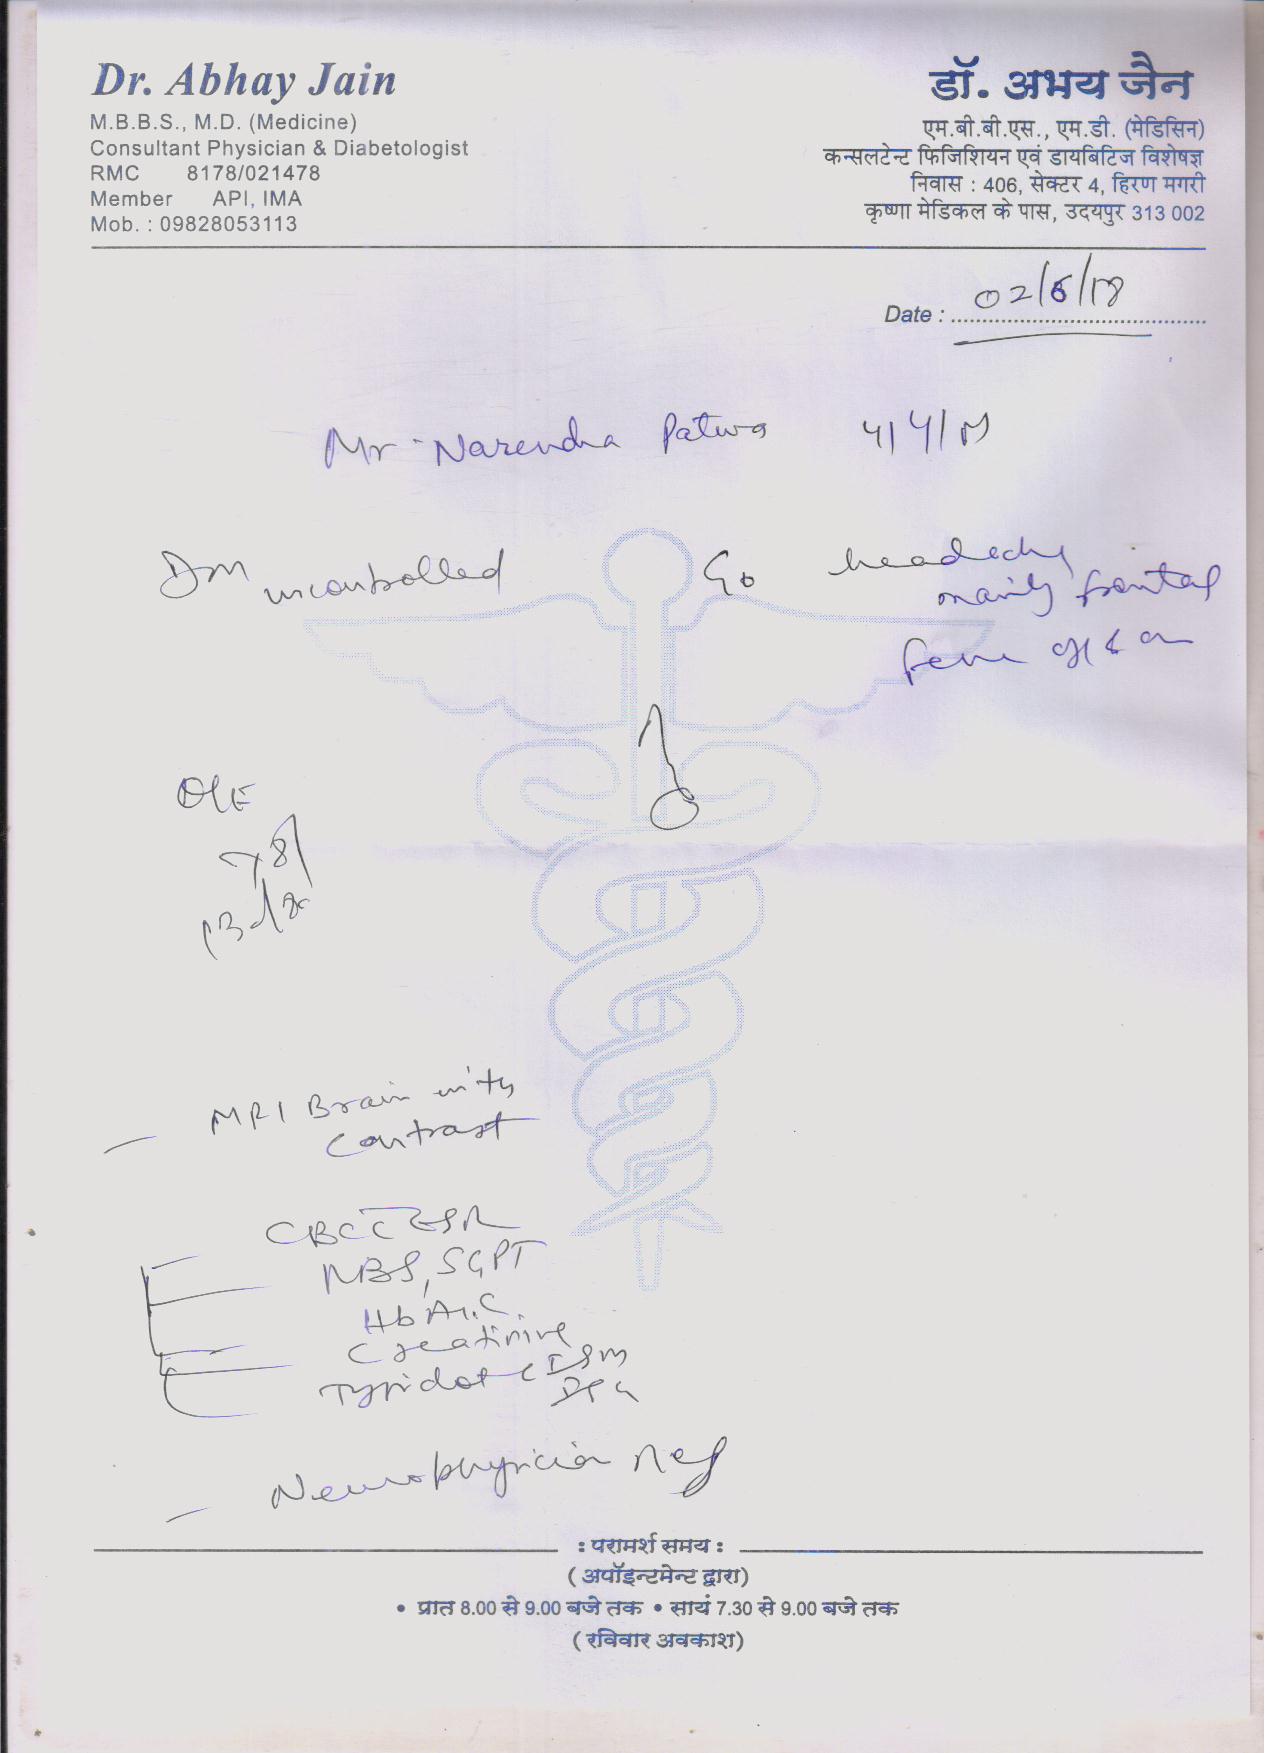 Dr. Abhay Jain
M.B.B.S., M.D. (Medicine)
Consultant Physician & Diabetologist
RMC 8178/021478
Member API, IMA
Mob. : 09828053113
डॉ. अभय जैन
एम.बी.बी.एस., एम.डी. (मेडिसिन)
कन्सलटेन्ट फिजिशियन एवं डायबिटिज विशेषज्ञ
निवास : 406, सेक्टर 4, हिरण मगरी
कृष्णा मेडिकल के पास, उदयपुर 313 002
Date : 02/6/18
Mr Narendra Patwa
DM uncontrolled
headache
mainly frontal
O/E
MRI Brain with
contrast
CBC ESR
RBS, SGPT
HbA1C
Creatinine
Typhidot IgM
IgG
Neurophysician Ref
: परामर्श समय :
(अपॉइन्टमेन्ट द्वारा)
• प्रात 8.00 से 9.00 बजे तक • सायं 7.30 से 9.00 बजे तक
(रविवार अवकाश)